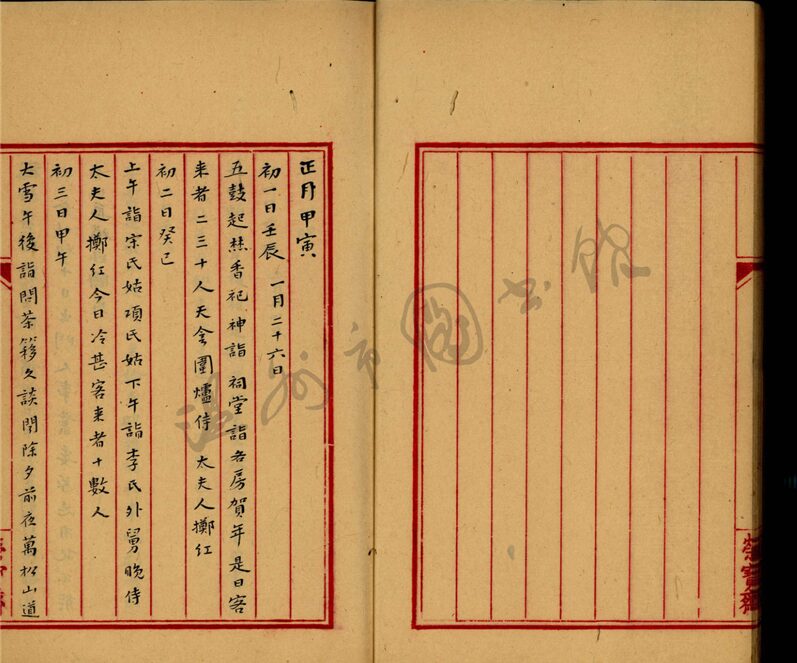 正月甲寅
初一日壬辰 一月二十六日
五鼓起爇香祀神詣 祠堂詣各房賀年是日客
来者二三十人天会圍爐侍 太夫人擲红
初二日癸巳
上午詣宗氏姑項氏姑下午詣李氏外舅晚侍
太夫人擲红今日冷甚客来者十數人
初三日甲午
大雪午後詣閻茶簃久談聞除夕前夜萬松山道
温州市圖书館
榮寶